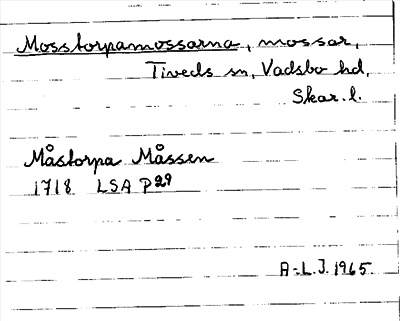 Mosstorpamossarna, mossar,
Tiveds sn, Vadsbo hd,
Skar. l.
Måstorpa Måssen
1718 LSA P29
A-L.J. 1965.